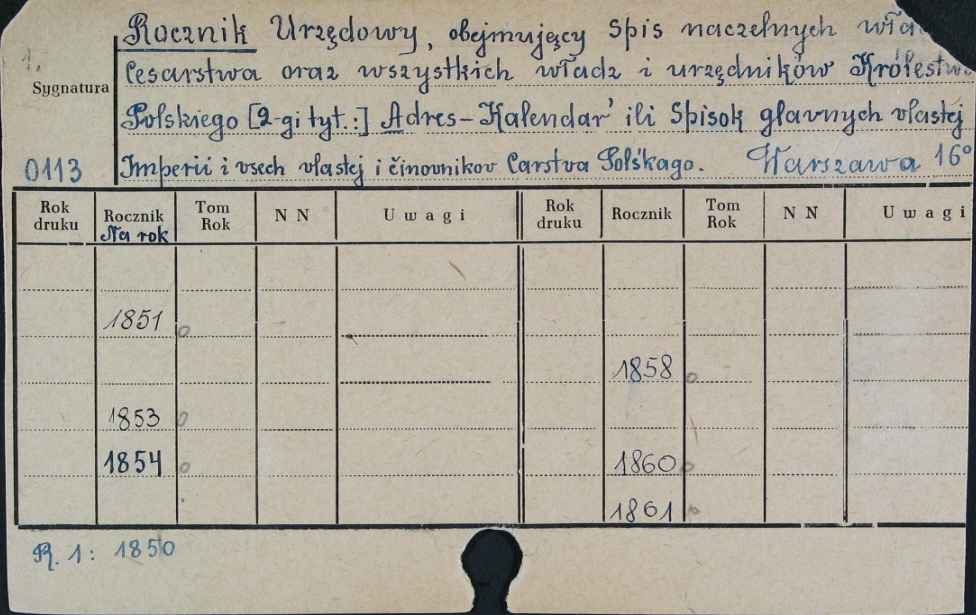 Rocznik Urzędowy, obejmujący Spis naczelnych
1.
Cesarstwa oraz wszystkich władz i urzędników
Sygnatura
Polskiego [2-gi tyt.:] Adres-Kalendar' ili Spisok glavnych vlastej
0113 Imperii i vsech vlastej i činovnikov Carstva Polśkago. Warszawa 16°
Rok druku Rocznik Na rok Tom Rok N N Uwagi Rok druku Rocznik Tom Rok N N Uwagi
1851 o
1858 o
1853 o
1854 o 1860 o
1861 o
R. 1: 1850